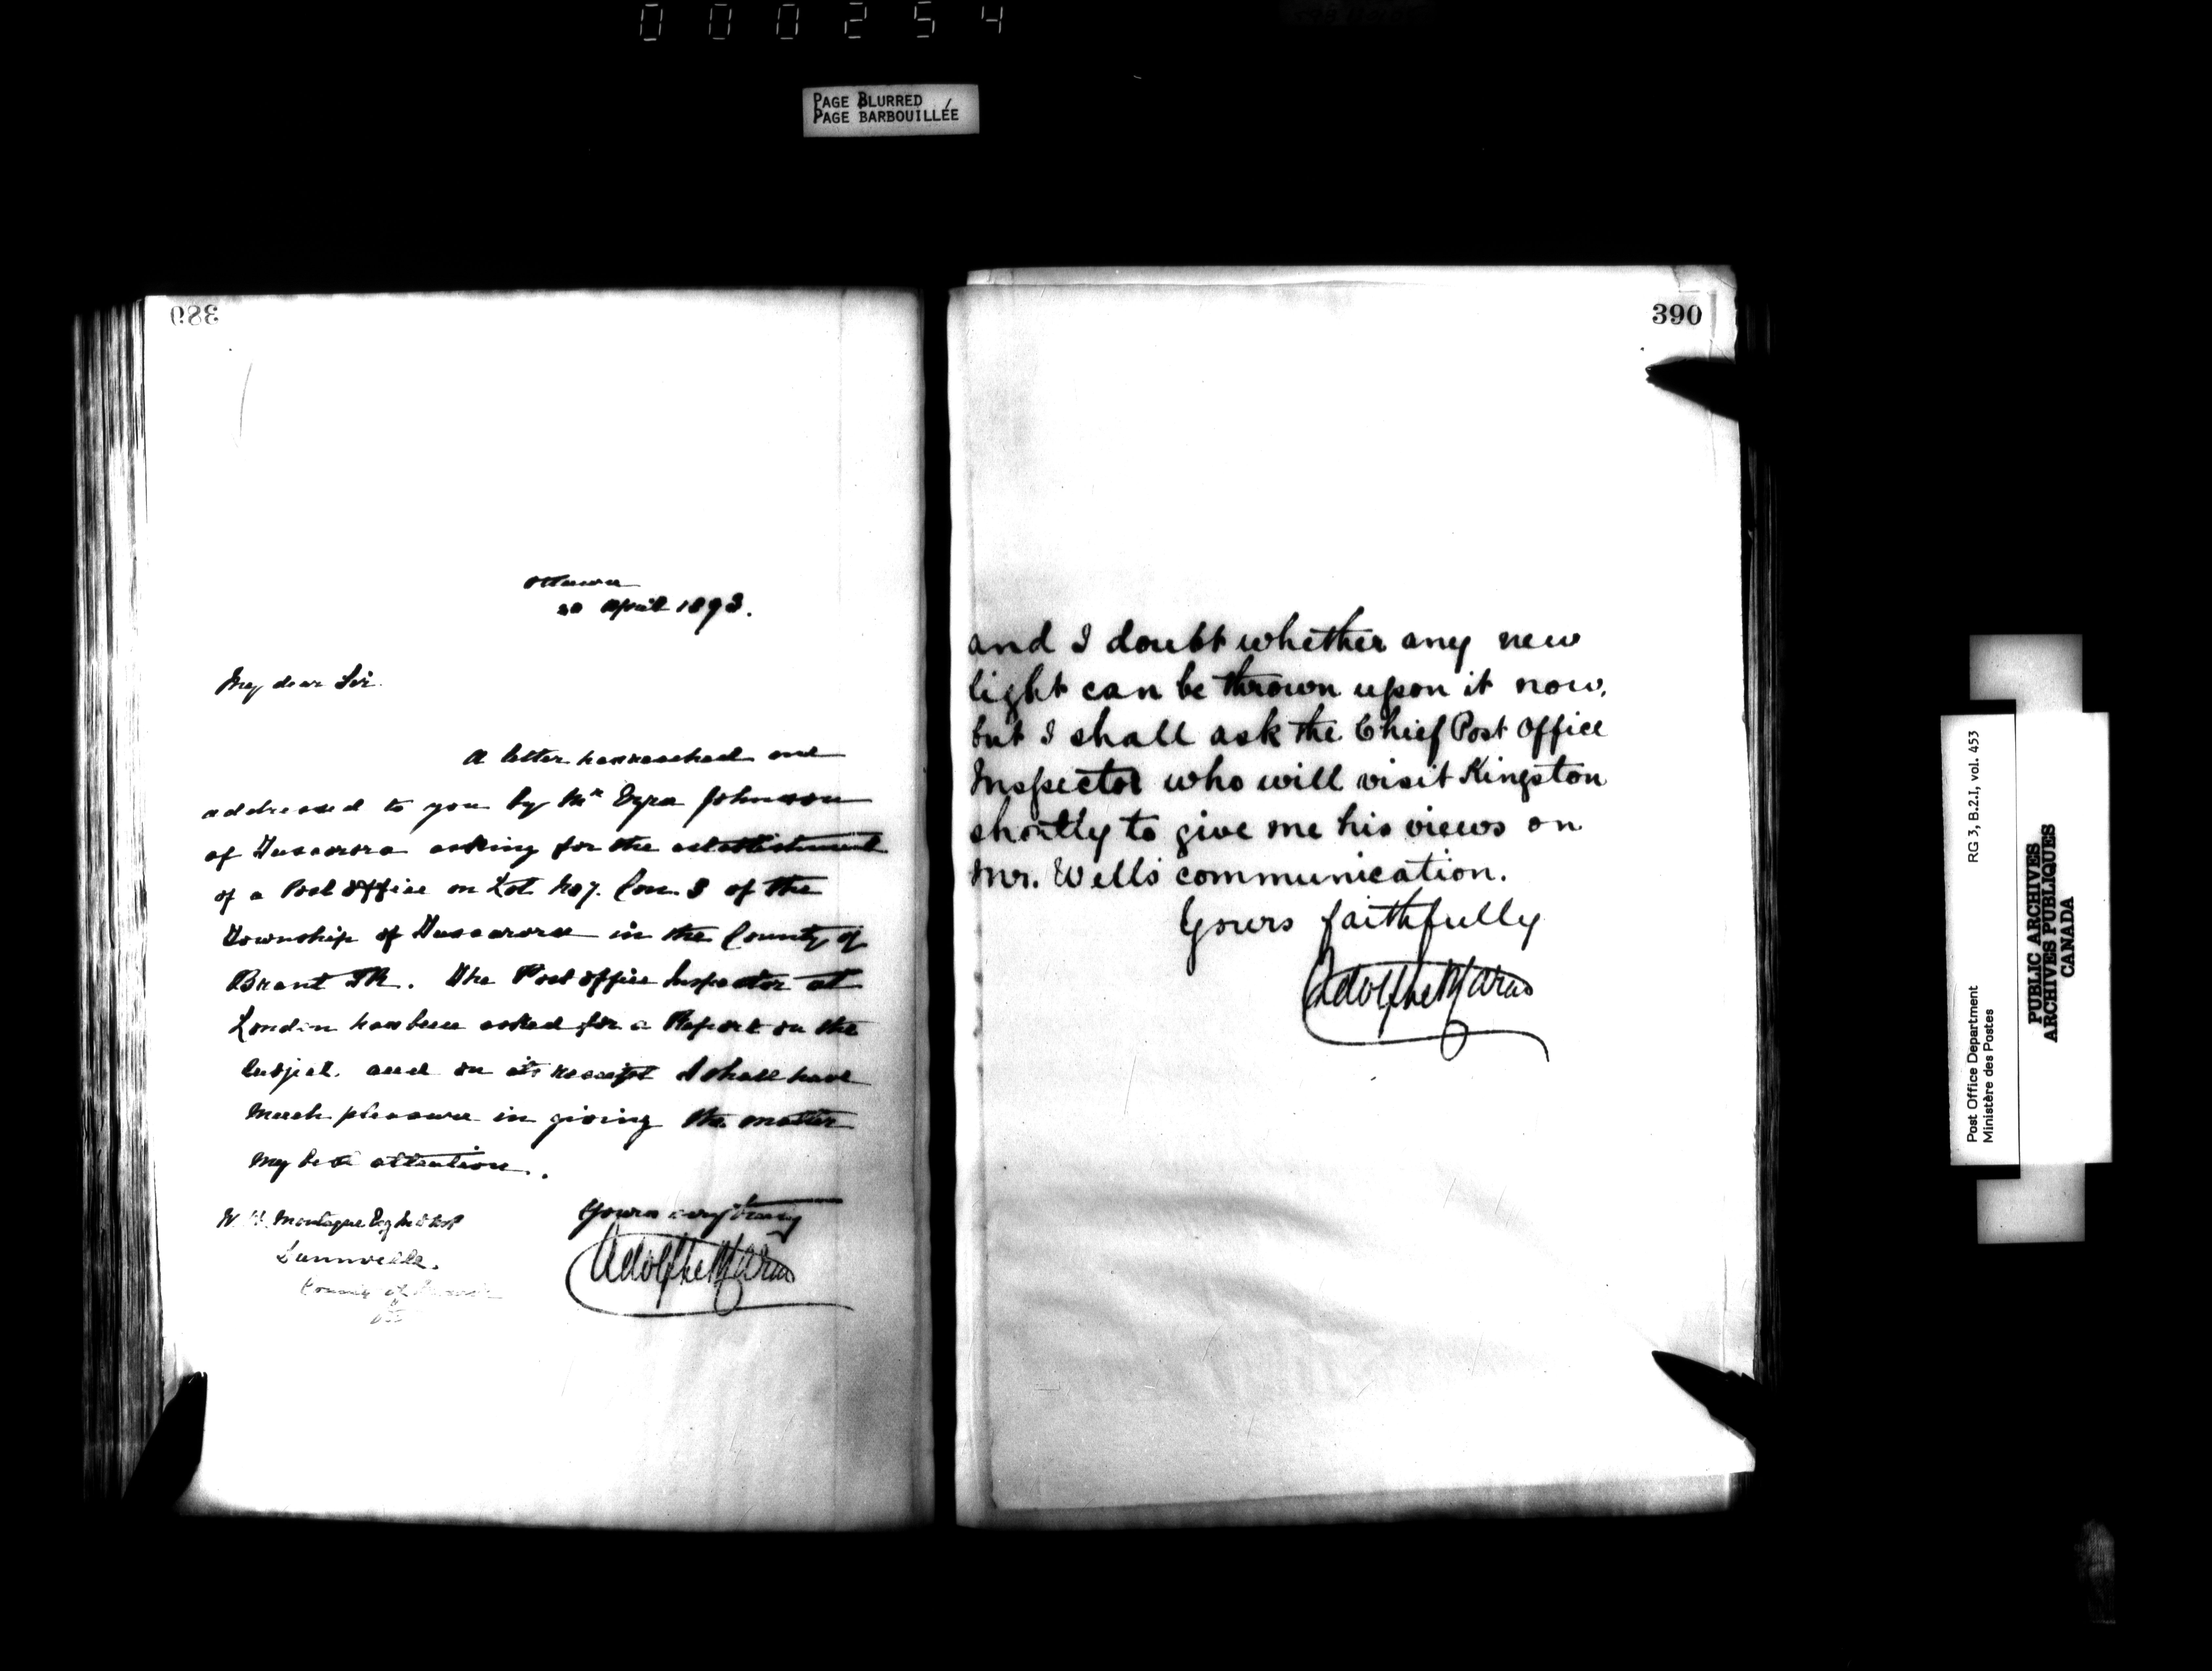 000254
PAGE BLURRED
PAGE BARBOUILLÉE
389
Ottawa
20 April 1893.
My dear Sir.
A letter has reached me
addressed to you by Mr Ezra Johnson
of Tuscarora asking for the establishment
of a Post Office on Lot No 7. Con. 3 of the
Township of Tuscarora in the County of
Brant . The Post Office Inspector at
London has been asked for a Report on the
subject. and on its receipt I shall have
much pleasure in giving the matter
my best attention.
W. H. Montague Esq M.P
Dunnville.
County of
Yours very truly
Adolphe P. Caron
390
and I doubt whether any new
light can be thrown upon it now,
but I shall ask the Chief Post Office
Inspector who will visit Kingston
shortly to give me his views on
Mr. Wells communication.
Yours faithfully
Adolphe P. Caron
Post Office Department
Ministère des Postes
RG 3, B.2.1, vol. 453
PUBLIC ARCHIVES
ARCHIVES PUBLIQUES
CANADA